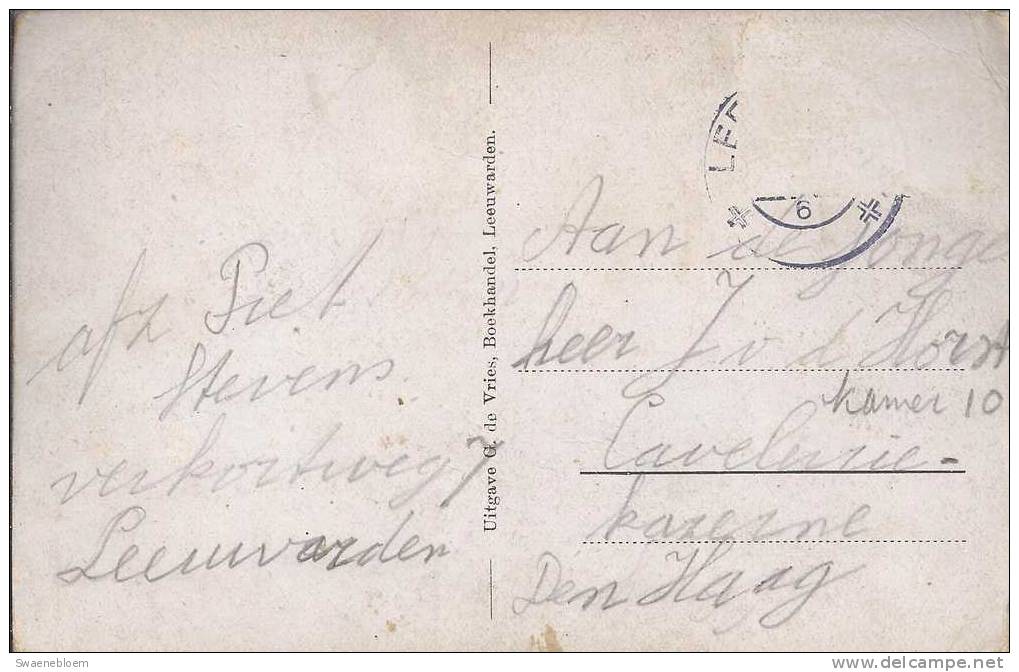 LEE
6
Aan de Jonge
heer J v d Horst
kamer 10
Cavelerie-
kazerne
Den Haag
afz Piet
Stevens
verkortweg 7
Leeuwarden
Uitgave G. de Vries, Boekhandel, Leeuwarden.
Swaenebloem
delcampe.net